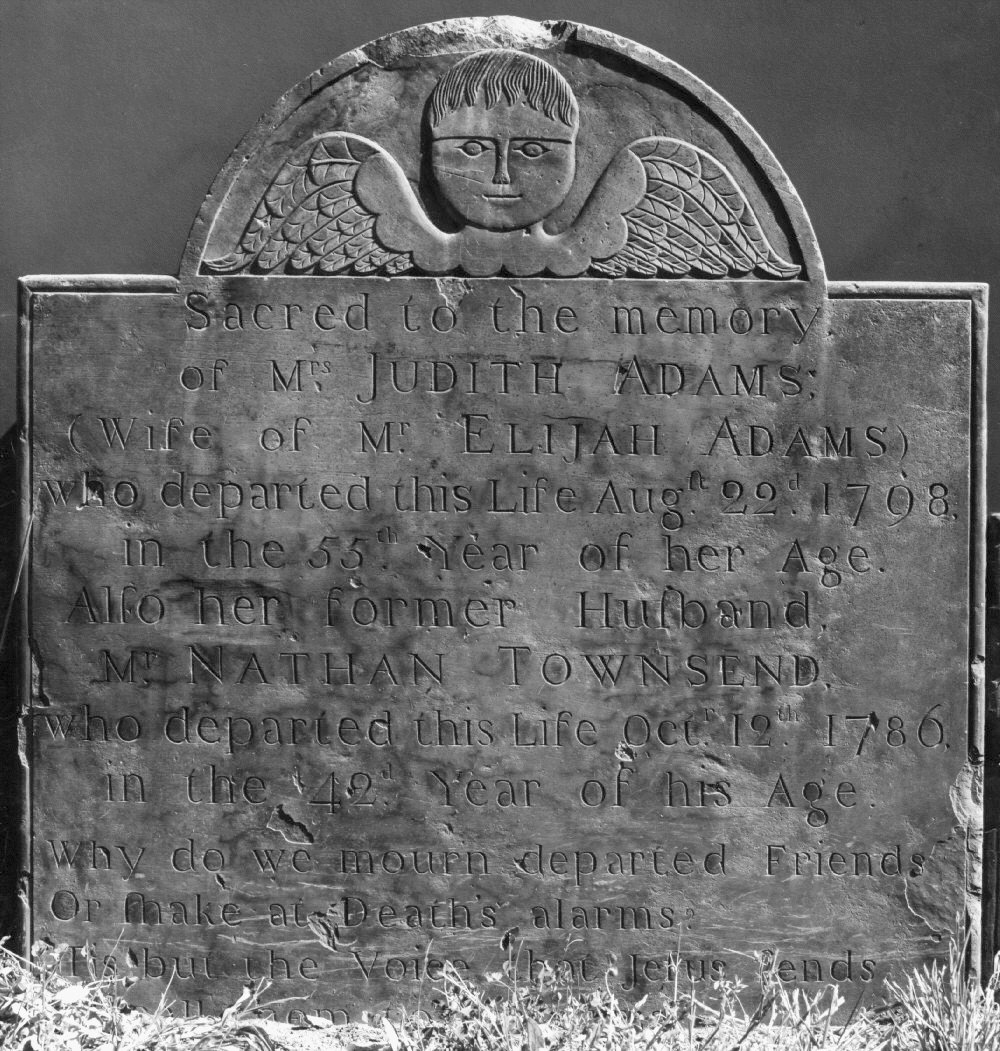 Sacred to the memory
of Mrs. JUDITH ADAMS,
(Wife of Mr. ELIJAH ADAMS)
who departed this Life Augſt 22d. 1798,
in the 55th. Year of her Age.
Alſo her former Huſband,
Mr. NATHAN TOWNSEND,
who departed this Life Octr 12th. 1786,
in the 42d. Year of his Age.
Why do we mourn departed Friends,
Or ſhake at Death's alarms?
'Tis but the Voice that Jeſus ſends